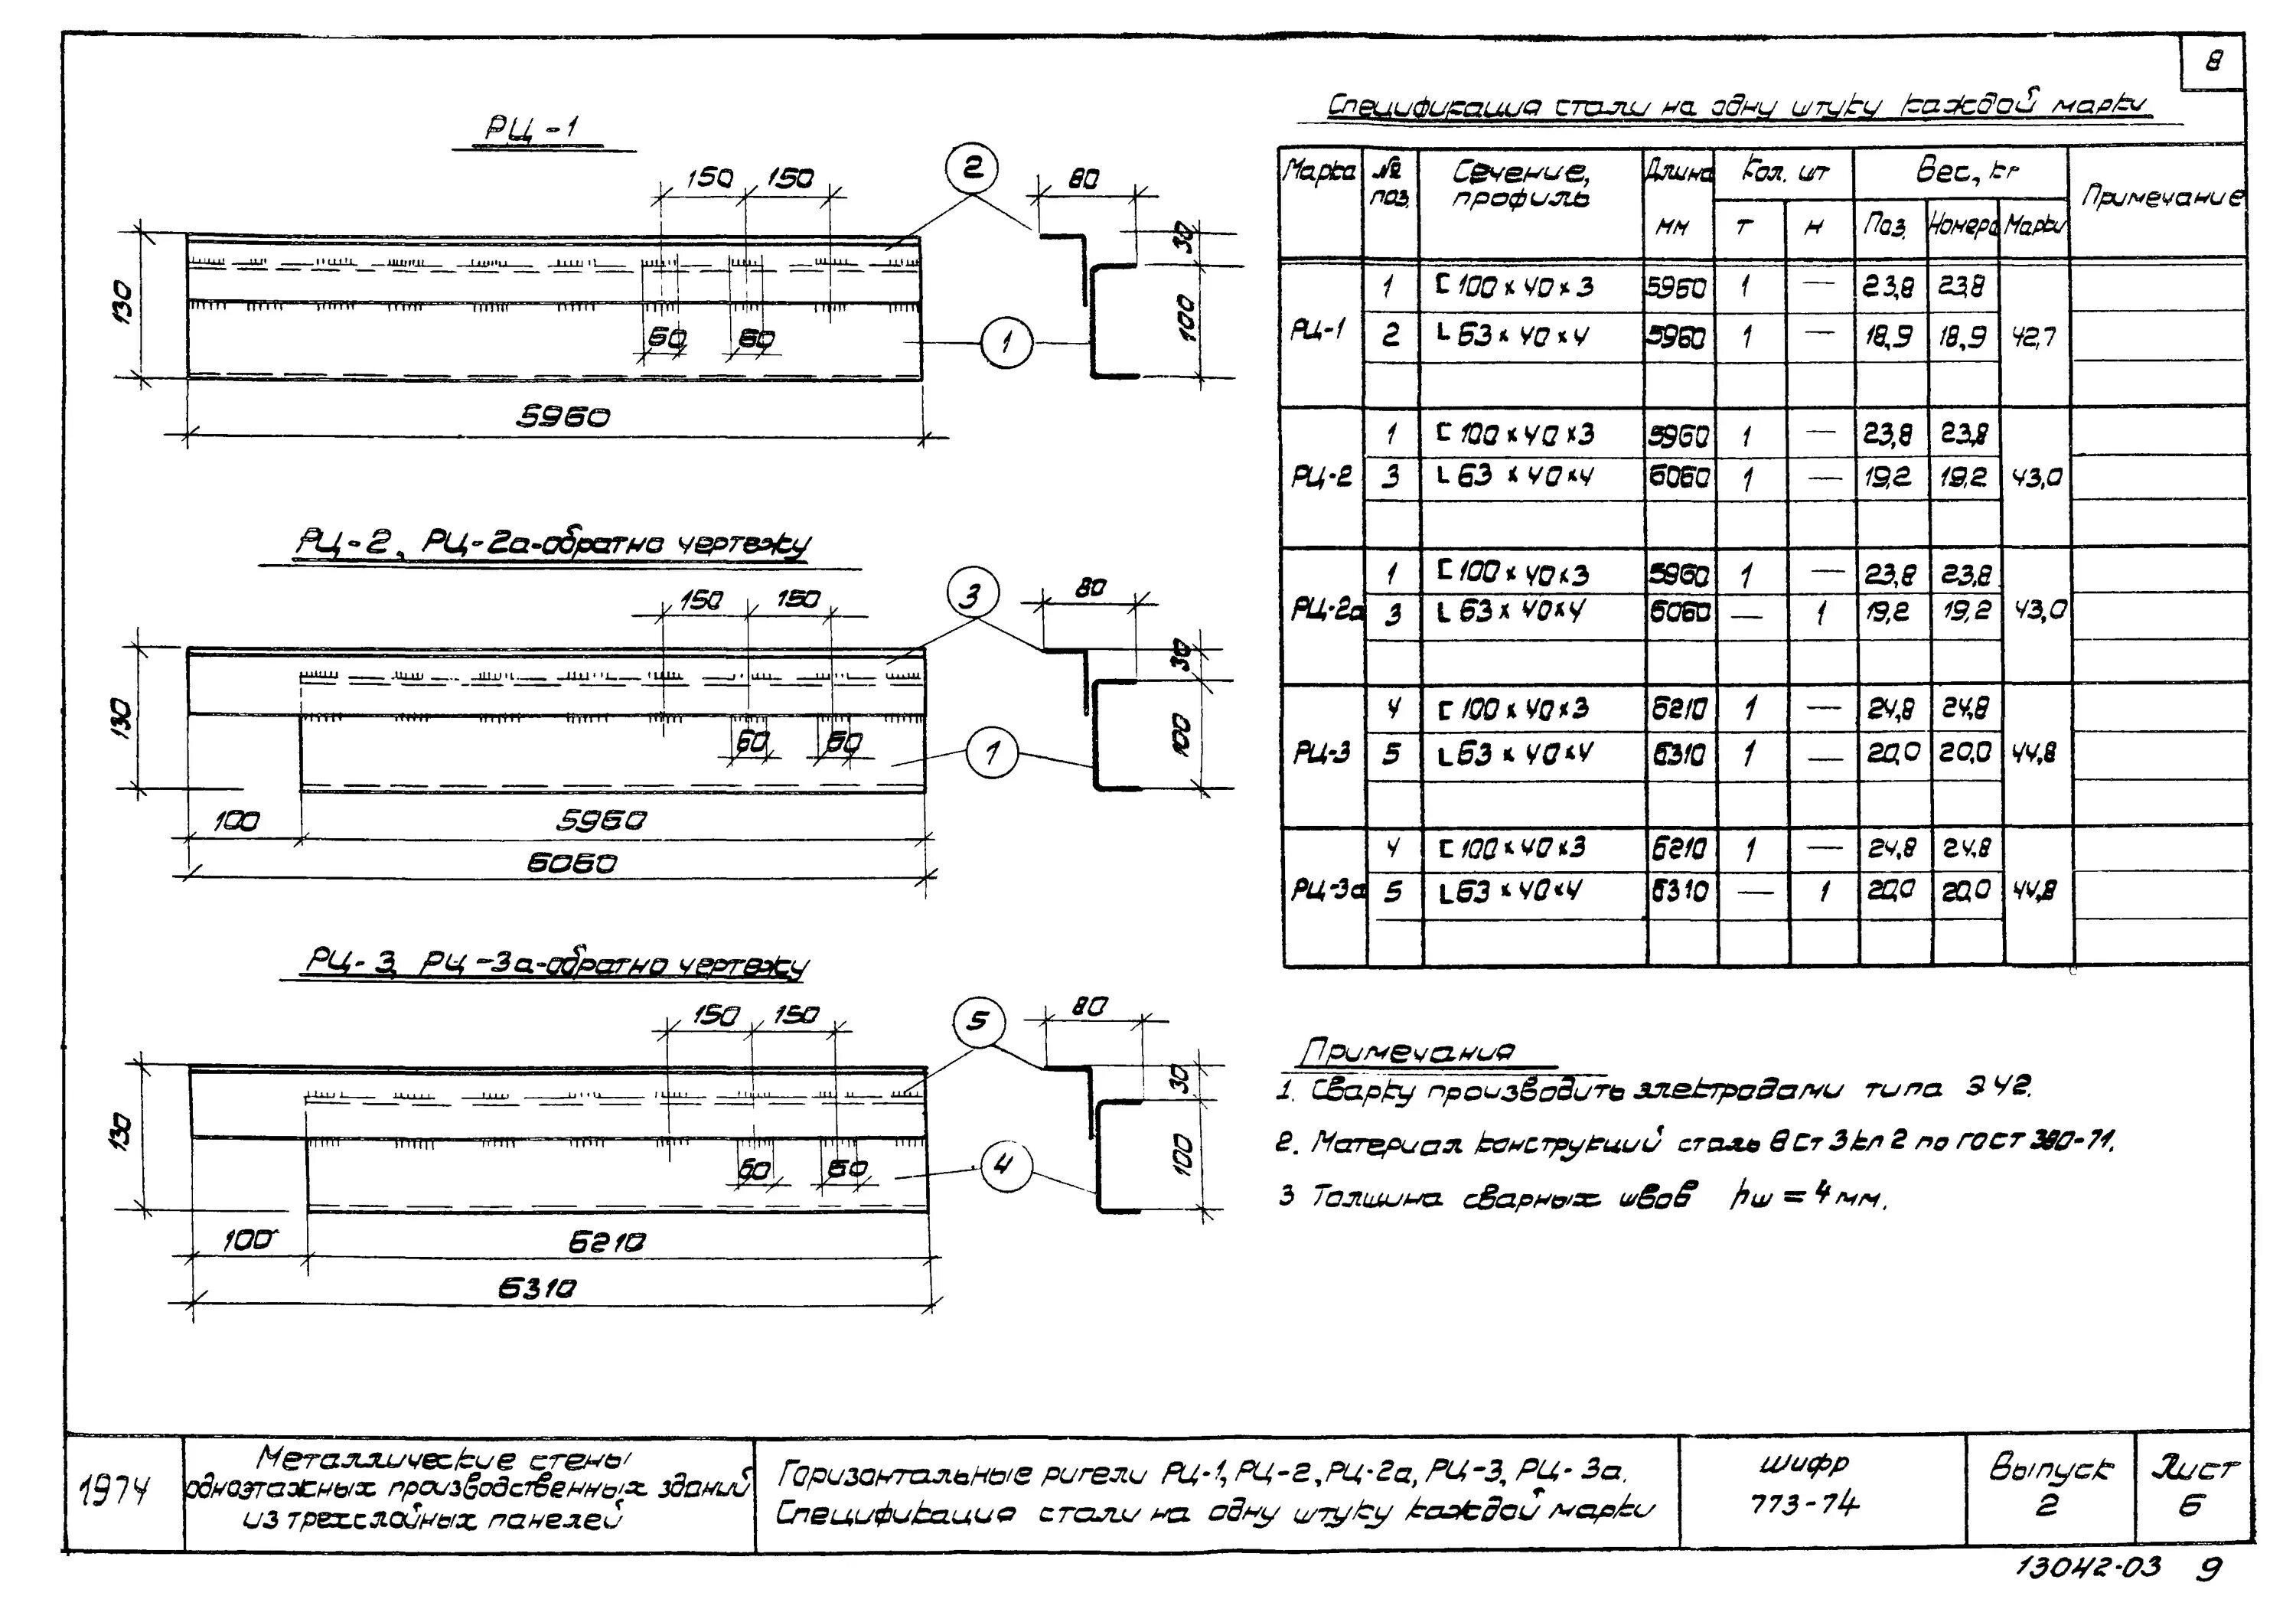 8
РЦ-1
150 150
2
80
130
30
100
60 60
1
5960
РЦ-2, РЦ-2а-обратно чертежу
150 150
3
80
130
30
100
60 60
1
100 5960
6060
РЦ-3, РЦ-3а-обратно чертежу
150 150
5
80
130
30
100
60 60
4
100 6210
6310
Спецификация стали на одну штуку каждой марки
Марка № поз. Сечение, профиль Длина мм Кол. шт Вес, кг Примечание
т н Поз. Номера Марки
РЦ-1
1 [ 100 x 40 x 3 5960 1 — 23,8 23,8
2 L 63 x 40 x 4 5960 1 — 18,9 18,9 42,7
РЦ-2
1 [ 100 x 40 x 3 5960 1 — 23,8 23,8
3 L 63 x 40 x 4 6060 1 — 19,2 19,2 43,0
РЦ-2а
1 [ 100 x 40 x 3 5960 1 — 23,8 23,8
3 L 63 x 40 x 4 6060 — 1 19,2 19,2 43,0
РЦ-3
4 [ 100 x 40 x 3 6210 1 — 24,8 24,8
5 L 63 x 40 x 4 6310 1 — 20,0 20,0 44,8
РЦ-3а
4 [ 100 x 40 x 3 6210 1 — 24,8 24,8
5 L 63 x 40 x 4 6310 — 1 20,0 20,0 44,8
Примечания
1. Сварку производить электродами типа Э42.
2. Материал конструкций сталь ВСт3кп2 по ГОСТ 380-71.
3 Толщина сварных швов hш = 4 мм.
1974
Металлические стены
одноэтажных производственных зданий
из трехслойных панелей
Горизонтальные ригели РЦ-1, РЦ-2, РЦ-2а, РЦ-3, РЦ-3а.
Спецификация стали на одну штуку каждой марки
шифр
773-74
Выпуск
2
Лист
6
13042-03 9